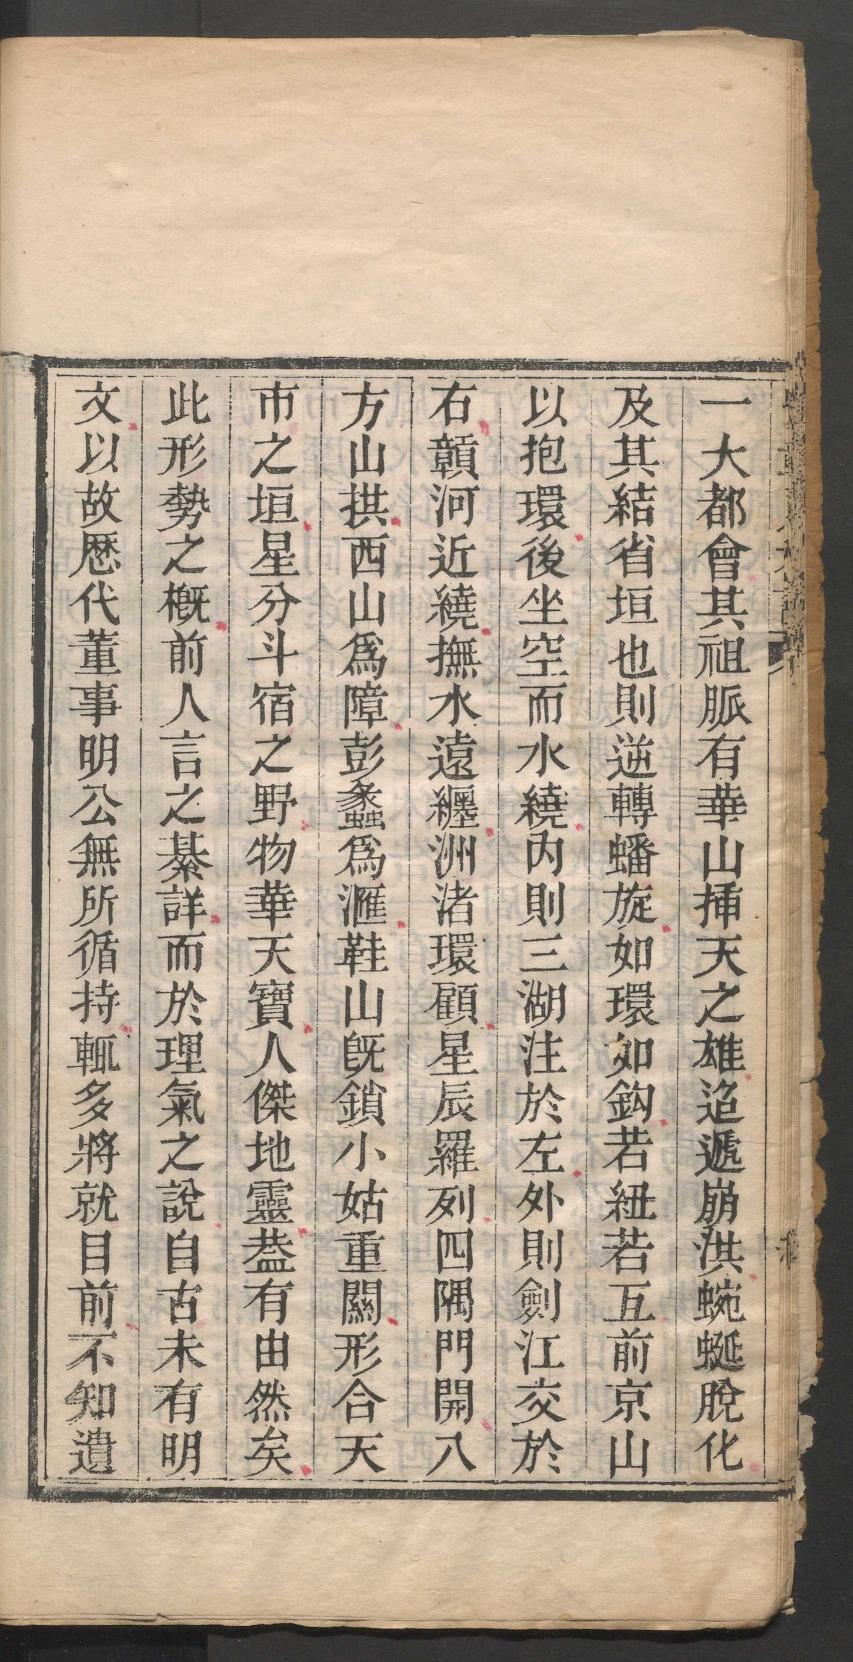 一大都會其祖脈有華山揷天之雄迢遞崩洪蜿蜒脫化
及其結省垣也則逆轉蟠旋如環如鈎若紐若互前京山
以抱環後坐空而水繞內則三湖注於左外則劍江交於
右贑河近繞撫水遠纒洲渚環顧星辰羅列四隅門開八
方山拱西山爲障彭蠡爲滙鞋山旣鎖小姑重關形合天
市之垣星分斗宿之野物華天寶人傑地靈葢有由然矣
此形勢之槪前人言之綦詳而於理氣之說自古未有明
文以故歷代董事明公無所循持輒多將就目前不知遺